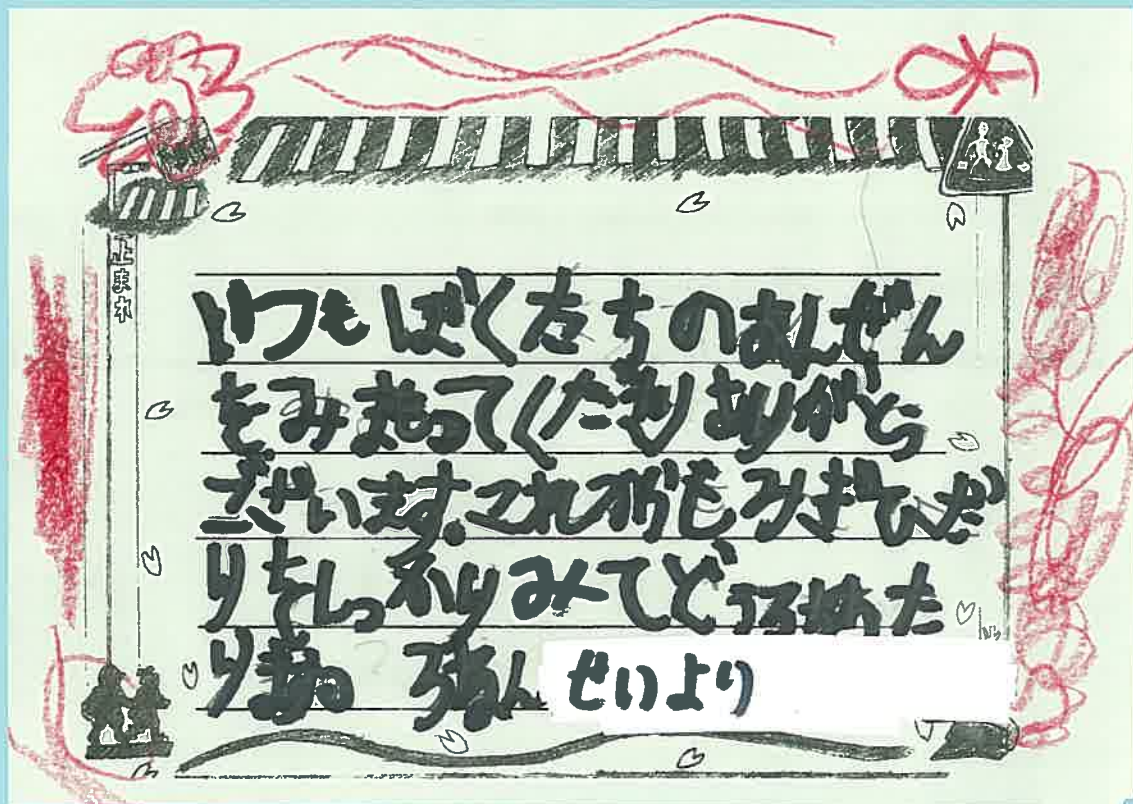 止まれ
いつもぼく左ちのあんぜん
をみまもってくださりありがとう
ございます。これからもみぎひだ
りをしっかりみてどうろをわた
ります。ろねん せいより